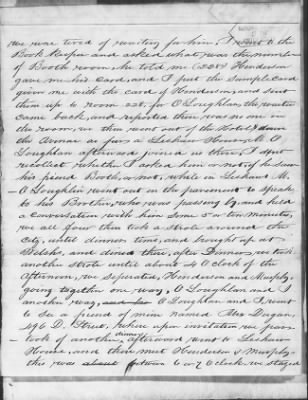 we were tired of waiting for him, I went to the
Book Keeper and asked what was the number
of Booth room, he told me (228) Henderson
gave me his card, and I put the sample card
given me with the card of Henderson, and sent
them up to room 228. for O'Loughlin, the waiter
came back, and reported there was no one in
the room, we then went out of the Hotel & down
the Avenue as far as Lichau House & O
Loughlin afterward joined us there, I dont
recollect whether I asked him or not, if he saw
his friend Booth, or not, while in Lichau H.
O'Loughlin went out on the pavement to speak
to his Brother, who was passing by, and held
a conversation with him some 5 or ten minutes,
we all four then took a stroll around the
City, until dinner time, and brought up at
Welch's, and dined there, after Dinner, we took
another stroll until about 4 O'Clock of the
Afternoon, we seperated, Henderson and Murphy,
going together one way, O'Loughlin and I
another way, O'Loughlin and I went
to see a friend of mine named Alex Dugan,
496 D. Street, where upon invitation we par-
took of another dinner, afterward went to Lichau
House, and then met Henderson & Murphy
this was about between 6 or 7 O'Clock, we stayed